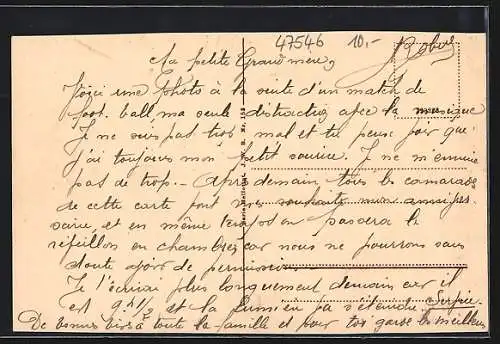 47546 10.-
Ma petite Grand'mère,
Voici une Photo à la suite d'un match de
foot-ball ma seule distraction avec la musique
Je ne suis pas trop mal et tu peux voir que
j'ai toujours mon petit sourire. Je ne m'ennuie
pas de trop.- Après demain, tous les camarades
de cette carte vont me souhaiter mon anniver
saire, et en même temps on passera le
réveillon en chambre car nous ne pourrons sans
doute avoir de permission
Je t'écrirai plus longuement demain car il
est 9h 1/2 et la lumière va s'éteindre.
De bonnes bises à toute la famille et pour toi garde les meilleurs